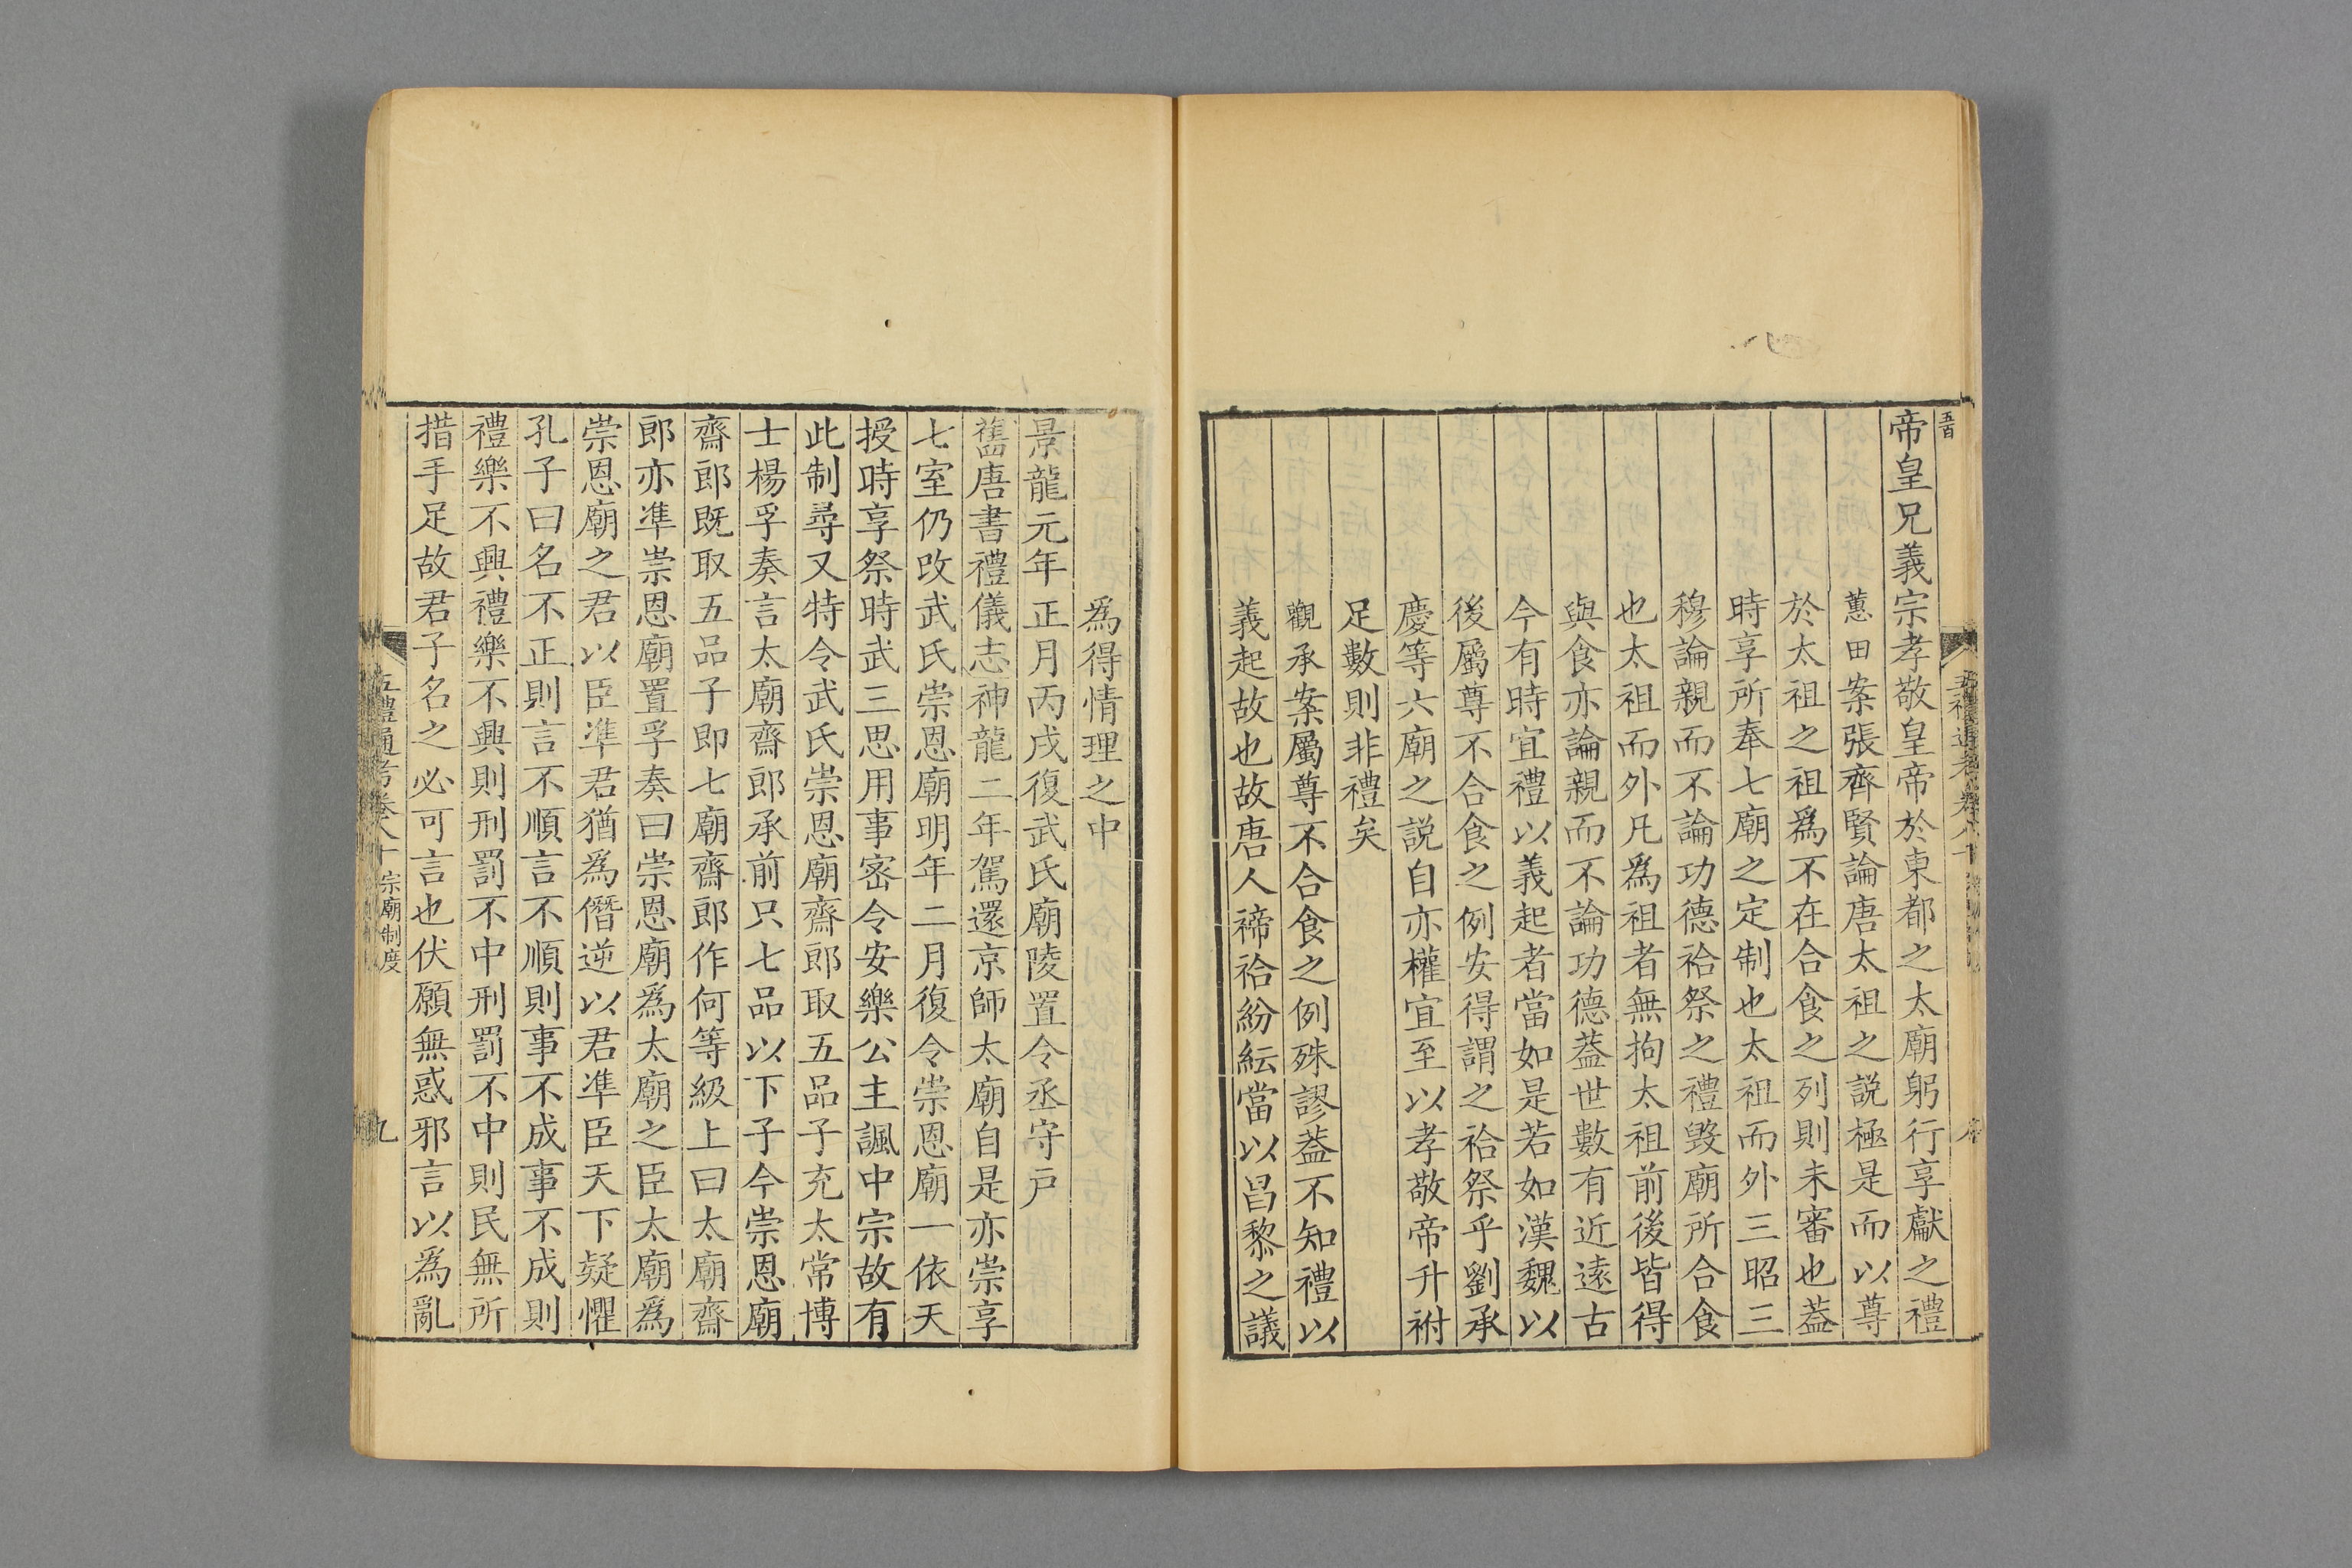 帝皇兄義宗孝敬皇帝於東都之太廟躬行享獻之禮
蕙田案張齊賢論唐太祖之説極是而以尊
於太祖之祖爲不在合食之列則未審也葢
時享所奉七廟之定制也太祖而外三昭三
穆論親而不論功德祫祭之禮毀廟所合食
也太祖而外凡爲祖者無拘太祖前後皆得
與食亦論親而不論功德葢世數有近遠古
今有時宜禮以義起者當如是若如漢魏以
後屬尊不合食之例安得謂之祫祭乎劉承
慶等六廟之説自亦權宜至以孝敬帝升祔
足數則非禮矣
觀承案屬尊不合食之例殊謬葢不知禮以
義起故也故唐人禘祫紛紜當以昌黎之議
爲得情理之中
景龍元年正月丙戌復武氏廟陵置令丞守戸
舊唐書禮儀志神龍二年駕還京師太廟自是亦崇享
七室仍改武氏崇恩廟明年二月復令崇恩廟一依天
授時享祭時武三思用事密令安樂公主諷中宗故有
此制尋又特令武氏崇恩廟齋郎取五品子充太常博
士楊孚奏言太廟齋郎承前只七品以下子今崇恩廟
齋郎既取五品子即七廟齋郎作何等級上曰太廟齋
郎亦凖崇恩廟置孚奏曰崇恩廟爲太廟之臣太廟爲
崇恩廟之君以臣凖君猶爲僭逆以君凖臣天下疑懼
孔子曰名不正則言不順言不順則事不成事不成則
禮樂不興禮樂不興則刑罰不中刑罰不中則民無所
措手足故君子名之必可言也伏願無惑邪言以爲亂
五禮通考卷八十 宗廟制度
九